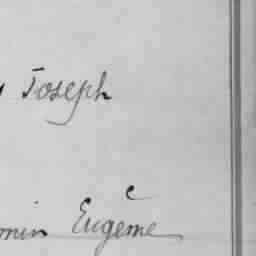 Joseph
min Eugème